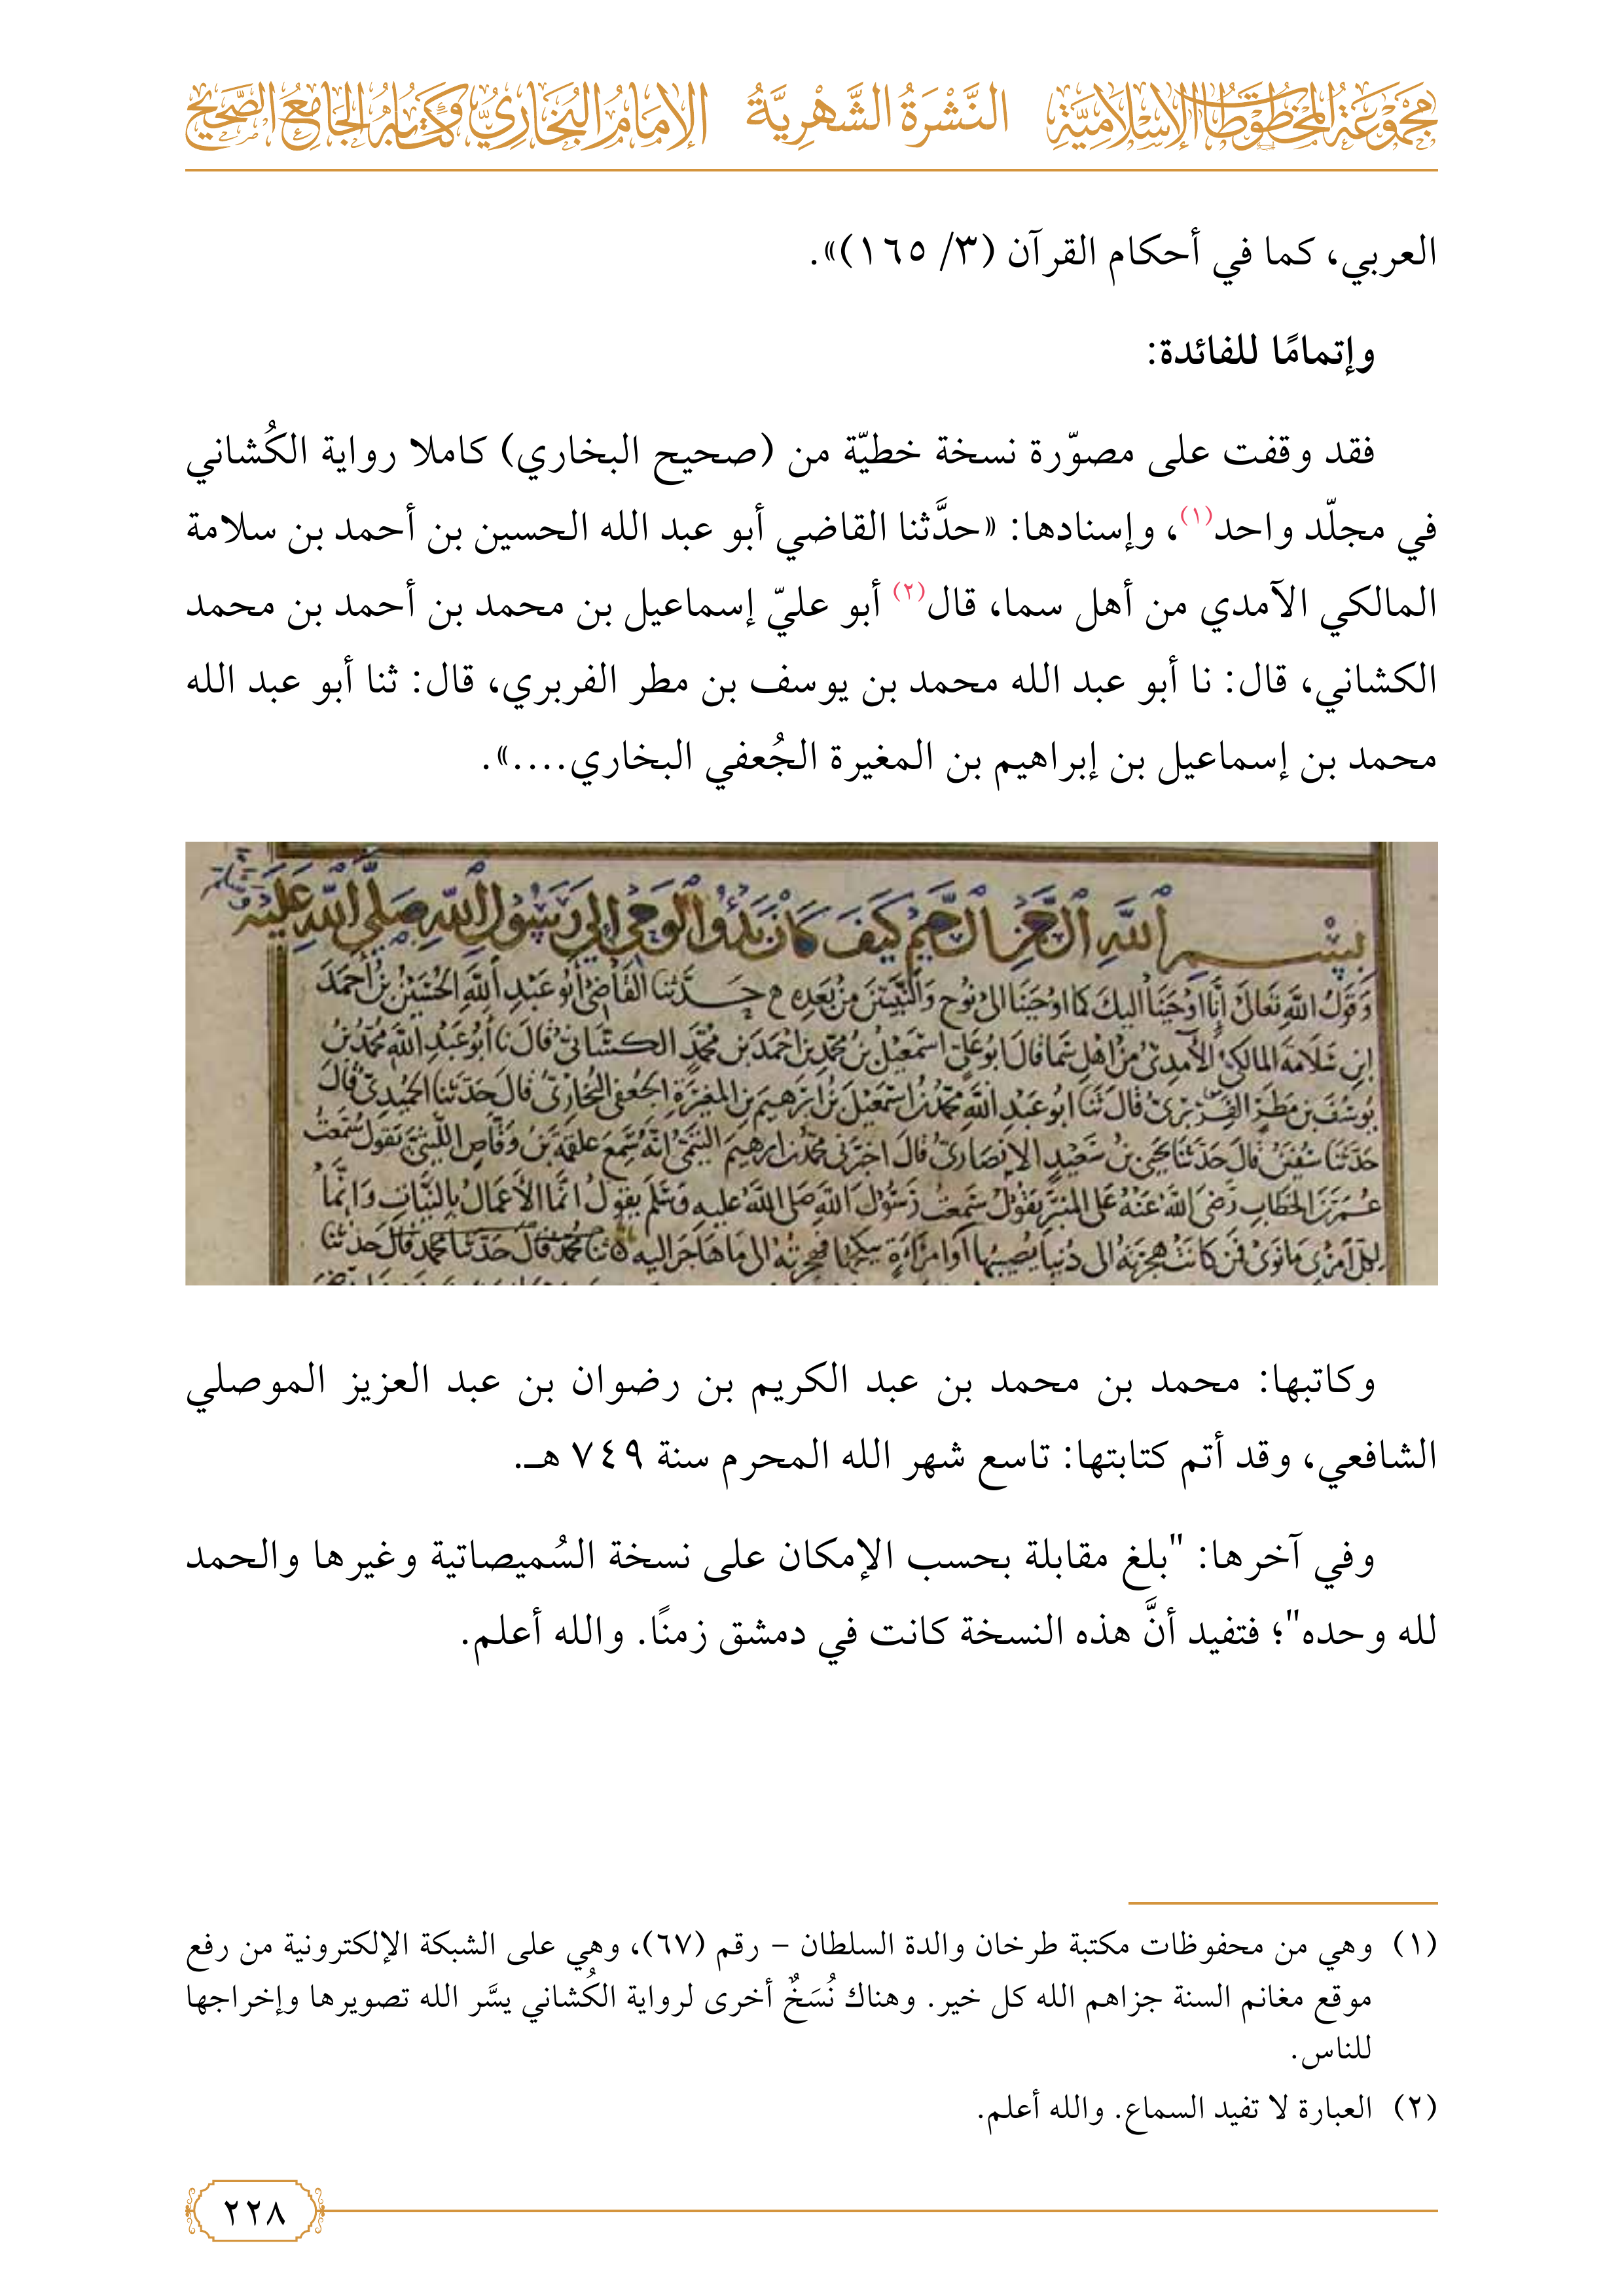 مَجْمُوعَةُ المَخْطُوطَاتِ الإِسْلَامِيَّةِ النَّشْرَةُ الشَّهْرِيَّةُ الإِمَامُ البُخَارِيُّ وَكِتَابُهُ الجَامِعُ الصَّحِيحُ
العربي، كما في أحكام القرآن (٣/ ١٦٥)».
وإتمامًا للفائدة:
فقد وقفت على مصوّرة نسخة خطيّة من (صحيح البخاري) كاملا رواية الكُشاني
في مجلّد واحد(١)، وإسنادها: «حدَّثنا القاضي أبو عبد الله الحسين بن أحمد بن سلامة
المالكي الآمدي من أهل سما، قال(٢) أبو عليّ إسماعيل بن محمد بن أحمد بن محمد
الكشاني، قال: نا أبو عبد الله محمد بن يوسف بن مطر الفربري، قال: ثنا أبو عبد الله
محمد بن إسماعيل بن إبراهيم بن المغيرة الجُعفي البخاري....».
بسم الله الرحمن الرحيم كيف كان بدؤ الوحي الى رسول الله صلى الله عليه
وقول الله تعالى إنا اوحينا اليك كما اوحينا الى نوح والنبيين من بعده ح حدثنا القاضي أبو عبد الله الحسين بن أحمد
ابن سلامة المالكي الآمدي من اهل سما قال ابو علي اسمعيل بن محمد بن احمد بن محمد الكشاني قال نا أبو عبد الله محمد بن
يوسف بن مطر الفربري قال ثنا ابو عبد الله محمد بن اسمعيل بن ابرهيم بن المغيرة الجعفي البخاري قال حدثنا الحميدي قال
حدثنا سفين قال حدثنا يحيى بن سعيد الانصاري قال اخبرني محمد بن ابرهيم التيمي انه سمع علقمة بن وقاص الليثي يقول سمعت
عمر بن الخطاب رضي الله عنه على المنبر يقول سمعت رسول الله صلى الله عليه وسلم يقول انما الأعمال بالنيات وانما
لكل امرئ ما نوى فمن كانت هجرته الى دنيا يصيبها أو امرأة ينكحها فهجرته الى ما هاجر اليه ثنا محمد قال حدثنا محمد قال حدثنا
وكاتبها: محمد بن محمد بن عبد الكريم بن رضوان بن عبد العزيز الموصلي
الشافعي، وقد أتم كتابتها: تاسع شهر الله المحرم سنة ٧٤٩ هـ.
وفي آخرها: "بلغ مقابلة بحسب الإمكان على نسخة السُميصاتية وغيرها والحمد
لله وحده"؛ فتفيد أنَّ هذه النسخة كانت في دمشق زمنًا. والله أعلم.
(١) وهي من محفوظات مكتبة طرخان والدة السلطان – رقم (٦٧)، وهي على الشبكة الإلكترونية من رفع
موقع مغانم السنة جزاهم الله كل خير. وهناك نُسَخٌ أخرى لرواية الكُشاني يسَّر الله تصويرها وإخراجها
للناس.
(٢) العبارة لا تفيد السماع. والله أعلم.
٢٢٨